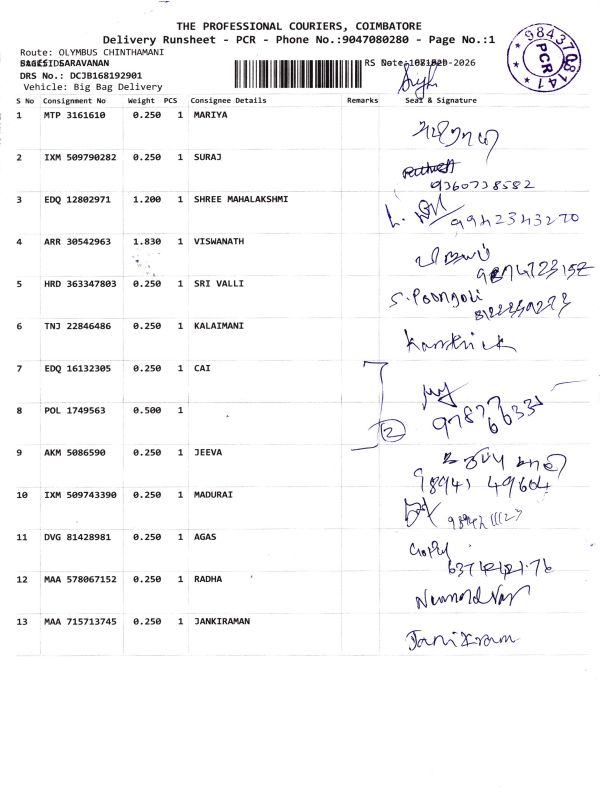 THE PROFESSIONAL COURIERS, COIMBATORE
Delivery Runsheet - PCR - Phone No.:9047080280 - Page No.:1
Route: OLYMBUS CHINTHAMANI
SARAVANAN
DRS No.: DCJB168192901
Vehicle: Big Bag Delivery
PCR
S No Consignment No Weight PCS Consignee Details Remarks Seal & Signature
1 MTP 3161610 0.250 1 MARIYA
2 IXM 509790282 0.250 1 SURAJ
9360738582
3 EDQ 12802971 1.200 1 SHREE MAHALAKSHMI
9942343270
4 ARR 30542963 1.830 1 VISWANATH
5 HRD 363347803 0.250 1 SRI VALLI
S. Poongodi
6 TNJ 22846486 0.250 1 KALAIMANI
Karthick
7 EDQ 16132305 0.250 1 CAI
8 POL 1749563 0.500 1
2
9 AKM 5086590 0.250 1 JEEVA
98941 49604
10 IXM 509743390 0.250 1 MADURAI
11 DVG 81428981 0.250 1 AGAS
12 MAA 578067152 0.250 1 RADHA
13 MAA 715713745 0.250 1 JANKIRAMAN
Janikiram